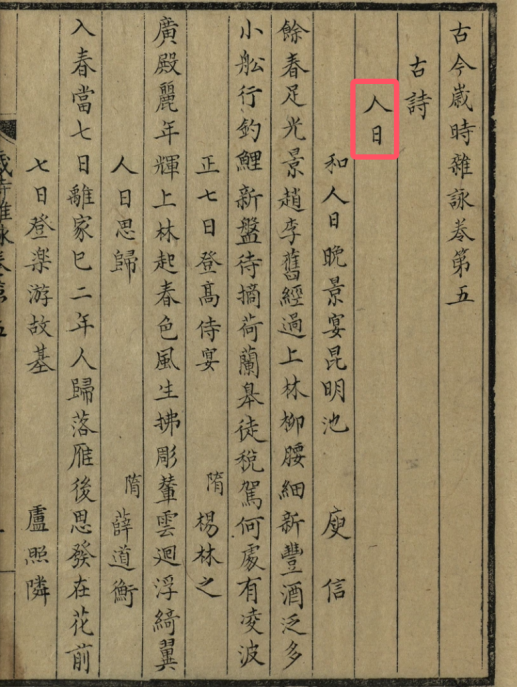 古今歲時雜詠卷第五
古詩
人日
和人日晚景宴昆明池 庾信
餘春足光景趙李舊經過上林柳腰細新豐酒泛多
小船行釣鯉新盤待摘荷蘭皋徒稅駕何處有凌波
正七日登高侍宴 隋 楊林之
廣殿麗年輝上林起春色風生拂彫輦雲迴浮綺翼
人日思歸 隋 薛道衡
入春當七日離家已二年人歸落雁後思發在花前
七日登樂游故基 盧照隣